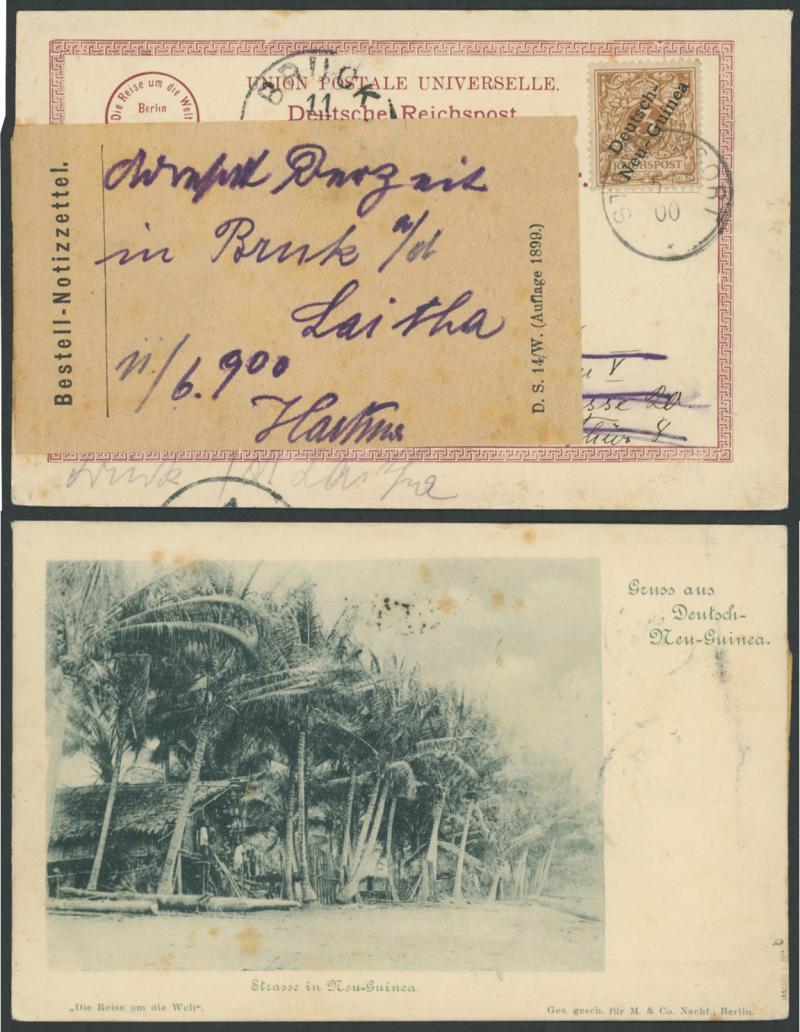 Die Reise um die Welt
Berlin
UNION POSTALE UNIVERSELLE.
Deutsche Reichspost
BRUCK
11
Deutsch-
Neu-Guinea
REICHSPOST
00
Bestell-Notizzettel.
Derzeit
in Bruk a/d
Laitha
11/6.900
D. S. 14/W. (Auflage 1899.)
V
sse 20
8
Bruk a/d Laitha
1
Gruss aus
Deutsch-
Neu-Guinea.
Strasse in Neu-Guinea.
„Die Reise um die Welt“.
Ges. gesch. für M. & Co. Nachf., Berlin.